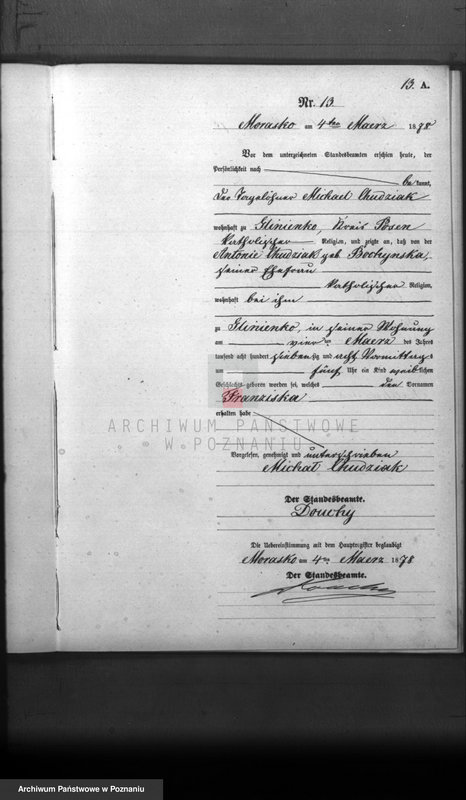 13. A.
Nr. 13
Morasko am 4ten Maerz 1878
Vor dem unterzeichneten Standesbeamten erschien heute, der
Persönlichkeit nach
bekannt,
Der Tagelöhner Michael Chudziak
wohnhaft zu Glinienko, Kreis Posen
katholischer Religion, und zeigte an, daß von der
Antonie Chudziak geb Bochynska,
seiner Ehefrau
katholischer Religion,
wohnhaft bei ihm
zu Glinienko, in seiner Wohnung
am vierten Maerz des Jahres
tausend acht hundert siebenzig und acht Vormittags
um fünf Uhr ein Kind weiblichen
Geschlechts geboren worden sei, welches den Vornamen
Franziska
erhalten habe
Vorgelesen, genehmigt und unterschrieben
Michał Chudziak
Der Standesbeamte.
Douchy
Die Uebereinstimmung mit dem Hauptregister beglaubigt
Morasko am 4ten Maerz 1878
Der Standesbeamte.
ARCHIWUM PAŃSTWOWE
W POZNANIU
Archiwum Państwowe w Poznaniu